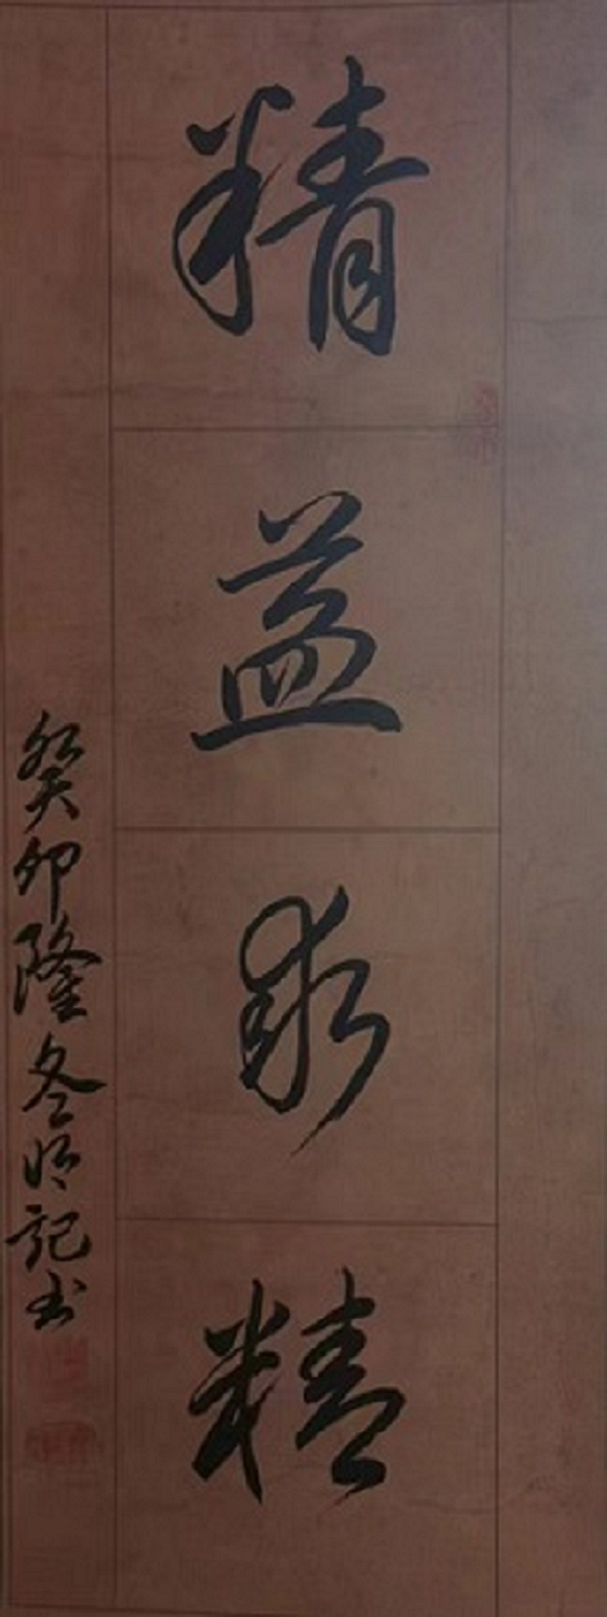 精益求精
癸卯隆冬 記书